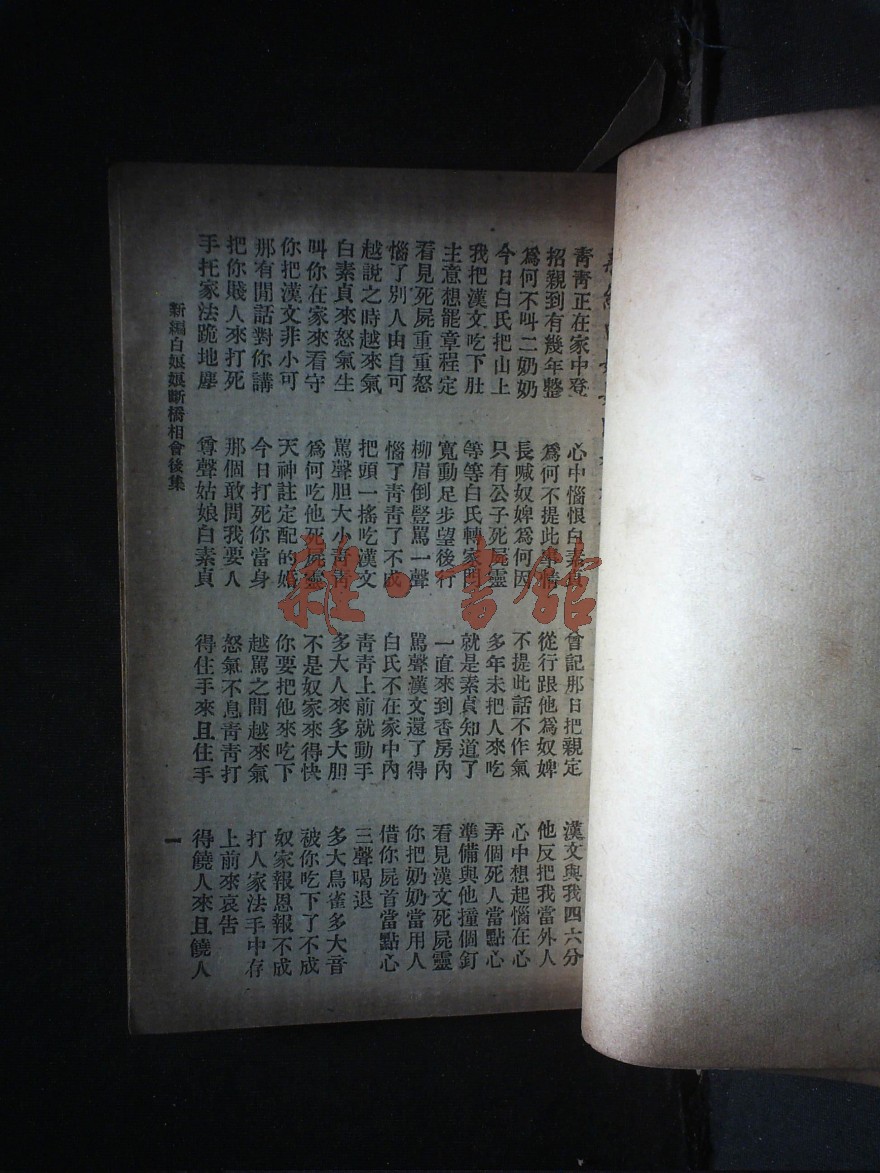 靑靑正在家中登　心中惱恨白素貞　曾記那日把親定　漢文與我四六分
招親到有幾年整　爲何不提此事情　從行跟他爲奴婢　他反把我當外人
爲何不叫二奶奶　長喊奴婢爲何因　不提此話不作氣　心中想起惱在心
今日白氏把山上　只有公子死屍靈　多年未把人來吃　弄個死人當點心
我把漢文吃下肚　等等白氏轉家門　就是素貞知道了　準備與他撞個釘
主意想罷章程定　寬動足步望後行　一直來到香房內　看見漢文死屍靈
看見死屍重重怒　柳眉倒豎罵一聲　罵聲漢文還了得　你把奶奶當用人
惱了別人由自可　惱了靑靑了不成　白氏不在家中內　借你屍首當點心
越說之時越來氣　把頭一搖吃漢文　靑靑上前就動手　三聲喝退
白素貞來怒氣生　罵聲胆大小靑靑　多大人來多大胆　多大鳥雀多大音
叫你在家來看守　爲何吃他死屍靈　不是奴家來得快　被你吃下了不成
你把漢文非小可　天神註定配的婚　你要把他來吃下　奴家報恩報不成
那有閒話對你講　今日打死你當身　越罵之間越來氣　打人家法手中存
把你賤人來打死　那個敢問我要人　怒氣不息靑靑打　上前來哀告
手托家法跪地塵　尊聲姑娘白素貞　得住手來且住手　得饒人來且饒人
新編白娘娘斷橋相會後集　一
雜·書館